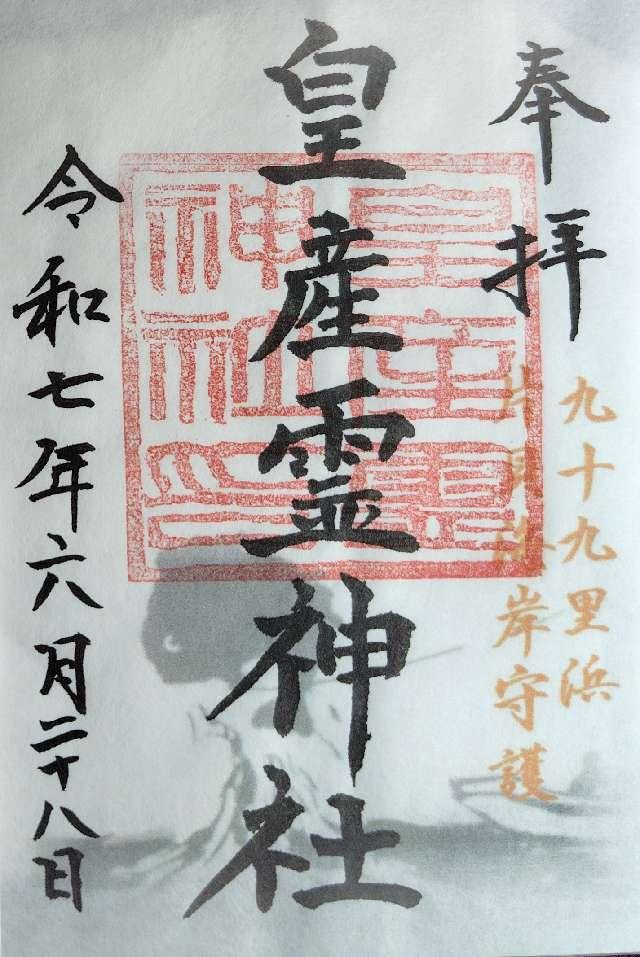 奉拝
九十九里浜
片貝海岸守護
皇産霊神社
皇産霊
神社印
令和七年六月二十八日